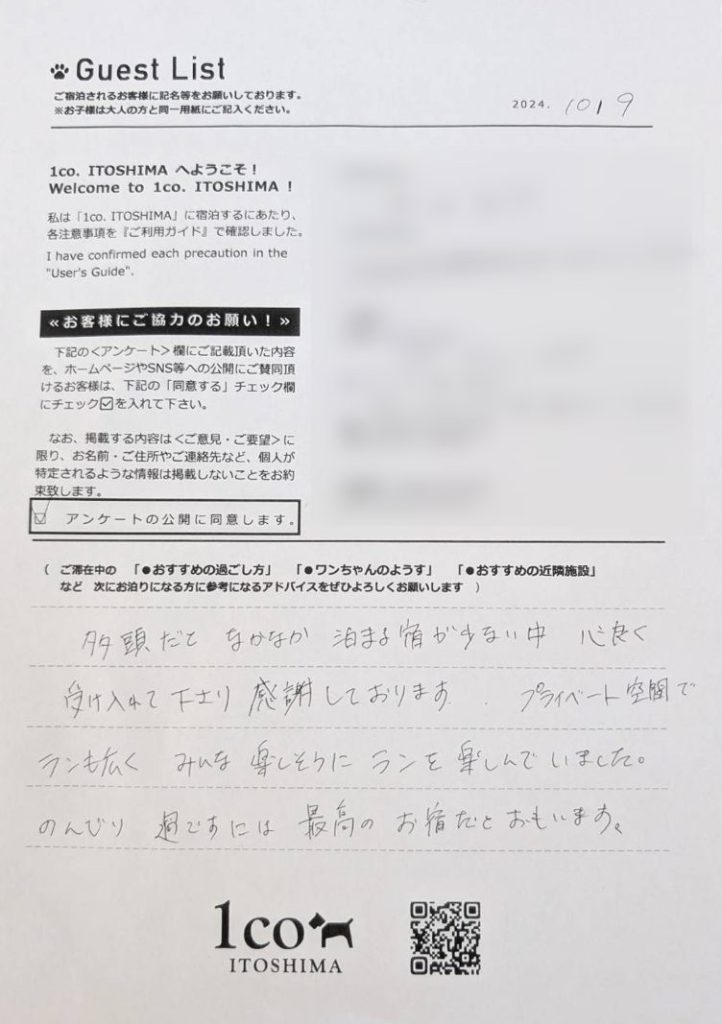 Guest List
ご宿泊されるお客様に記名等をお願いしております。
※お子様は大人の方と同一用紙にご記入ください。
2024. 10 19
1co. ITOSHIMA へようこそ！
Welcome to 1co. ITOSHIMA !
私は「1co. ITOSHIMA」に宿泊するにあたり、
各注意事項を『ご利用ガイド』で確認しました。
I have confirmed each precaution in the
"User's Guide".
≪お客様にご協力のお願い！≫
下記の＜アンケート＞欄にご記載頂いた内容
を、ホームページやSNS等への公開にご賛同頂
けるお客様は、下記の「同意する」チェック欄
にチェック☑を入れて下さい。
なお、掲載する内容は＜ご意見・ご要望＞に
限り、お名前・ご住所やご連絡先など、個人が
特定されるような情報は掲載しないことをお約
束致します。
☑ アンケートの公開に同意します。
（ ご滞在中の 「●おすすめの過ごし方」 「●ワンちゃんのようす」 「●おすすめの近隣施設」
など 次にお泊りになる方に参考になるアドバイスをぜひよろしくお願いします ）
多頭だと なかなか 泊まる宿が少ない中 心良く
受け入れて下さり 感謝しております. . プライベート空間で
ランも広く みんな 楽しそうに ランを 楽しんでいました。
のんびり 過ごすには 最高の お宿だとおもいます。
1co
ITOSHIMA